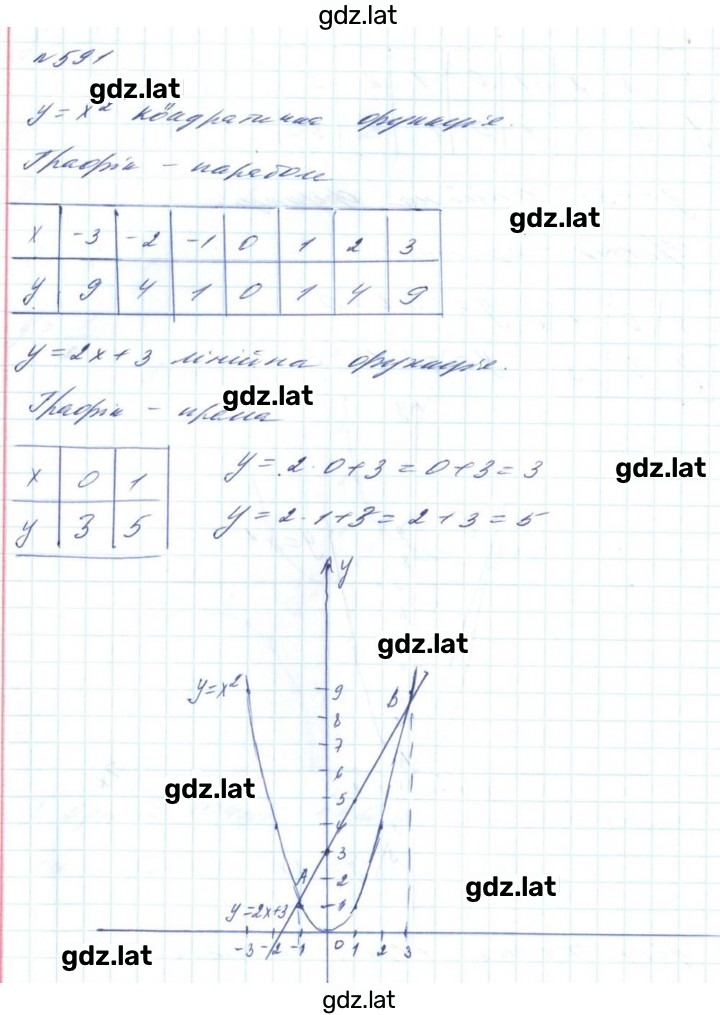 gdz.lat
№591
gdz.lat
y = x² квадратична функція.
Графік – парабола
gdz.lat
x -3 -2 -1 0 1 2 3
y 9 4 1 0 1 4 9
y = 2x + 3 лінійна функція.
gdz.lat
Графік – пряма
x 0 1
y 3 5
y = 2·0+3 = 0+3 = 3
gdz.lat
y = 2·1+3 = 2+3 = 5
y
gdz.lat
y=x²
B
9
8
7
6
gdz.lat
5
4
3
A
2
gdz.lat
1
y=2x+3
-3 -2 -1 0 1 2 3
gdz.lat
gdz.lat